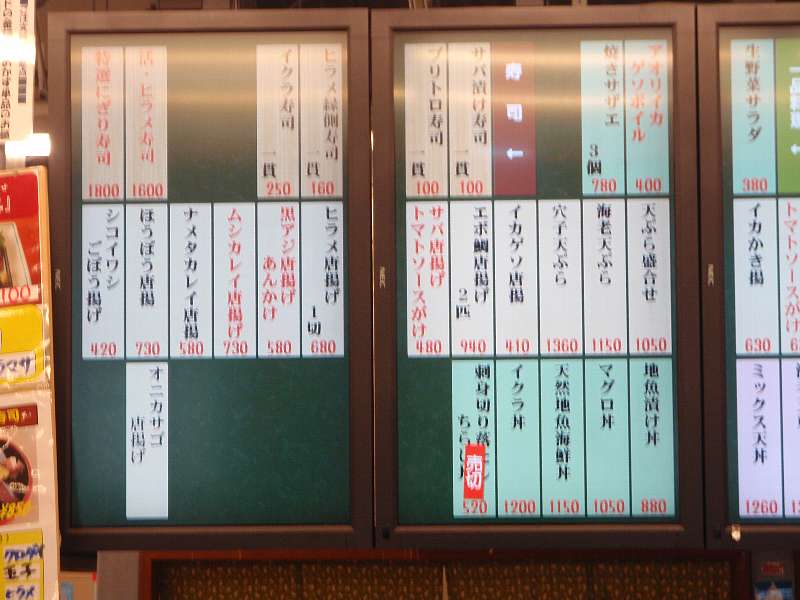 生野菜サラダ
380
アオリイカ
ゲソボイル
400
焼きサザエ
3個
780
寿司 ←
サバ漬け寿司
一貫
100
ブリトロ寿司
一貫
100
トマトソースがけ
イカかき揚
630
天ぷら盛合せ
1050
海老天ぷら
1150
穴子天ぷら
1360
イカゲソ唐揚
410
エボ鯛唐揚げ
2匹
940
サバ唐揚げ
トマトソースがけ
480
ミックス天丼
1260
地魚漬け丼
880
マグロ丼
1050
天然地魚海鮮丼
1150
イクラ丼
1200
刺身切り落
ちら
丼
売切
520
ヒラメ縁側寿司
一貫
160
イクラ寿司
一貫
250
活・ヒラメ寿司
1600
特選にぎり寿司
1800
ヒラメ唐揚げ
1切
680
黒アジ唐揚げ
あんかけ
580
ムシカレイ唐揚げ
730
ナメタカレイ唐揚
580
ほうぼう唐揚
730
シコイワシ
ごぼう揚げ
420
オニカサゴ
唐揚げ
NEC
NEC
NEC
玉子
ヒラメ